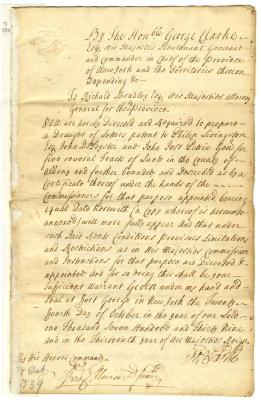 By The Honble George Clarke
Esq. His Majesties Lieutenant Governor
and Commander in Chief of the Province
of New York and the Territories thereon
Depending &c
To Richard Bradley Esq. His Majesties Attorney
General for the Province
You are hereby Directed and Required to prepare
a Draught of Letters patent to Philip Livingston
Esq. John and John Just Petrie for
five several Tracts of Land in the County of
Albany and further bounded and Described as by a
Certificate thereof under the hands of the
Commissioners for that purpose appointed bearing
equal Date herewith (a Copy whereof is hereunto
annexed) will more fully appear And that under
such Quit Rents Conditions Provisoes Limitations
and Restrictions as in His Majesties Commission
and Instructions for that purpose are Directed &
appointed And for so doing this shall be your
Sufficient Warrant Given under my hand and
Seal at Fort George in New York the Twenty
Fourth Day of October in the year of our Lord
One Thousand Seven Hundred and Thirty Nine
and in the Thirteenth year of His Majesties Reign
By His Honours Command
1739